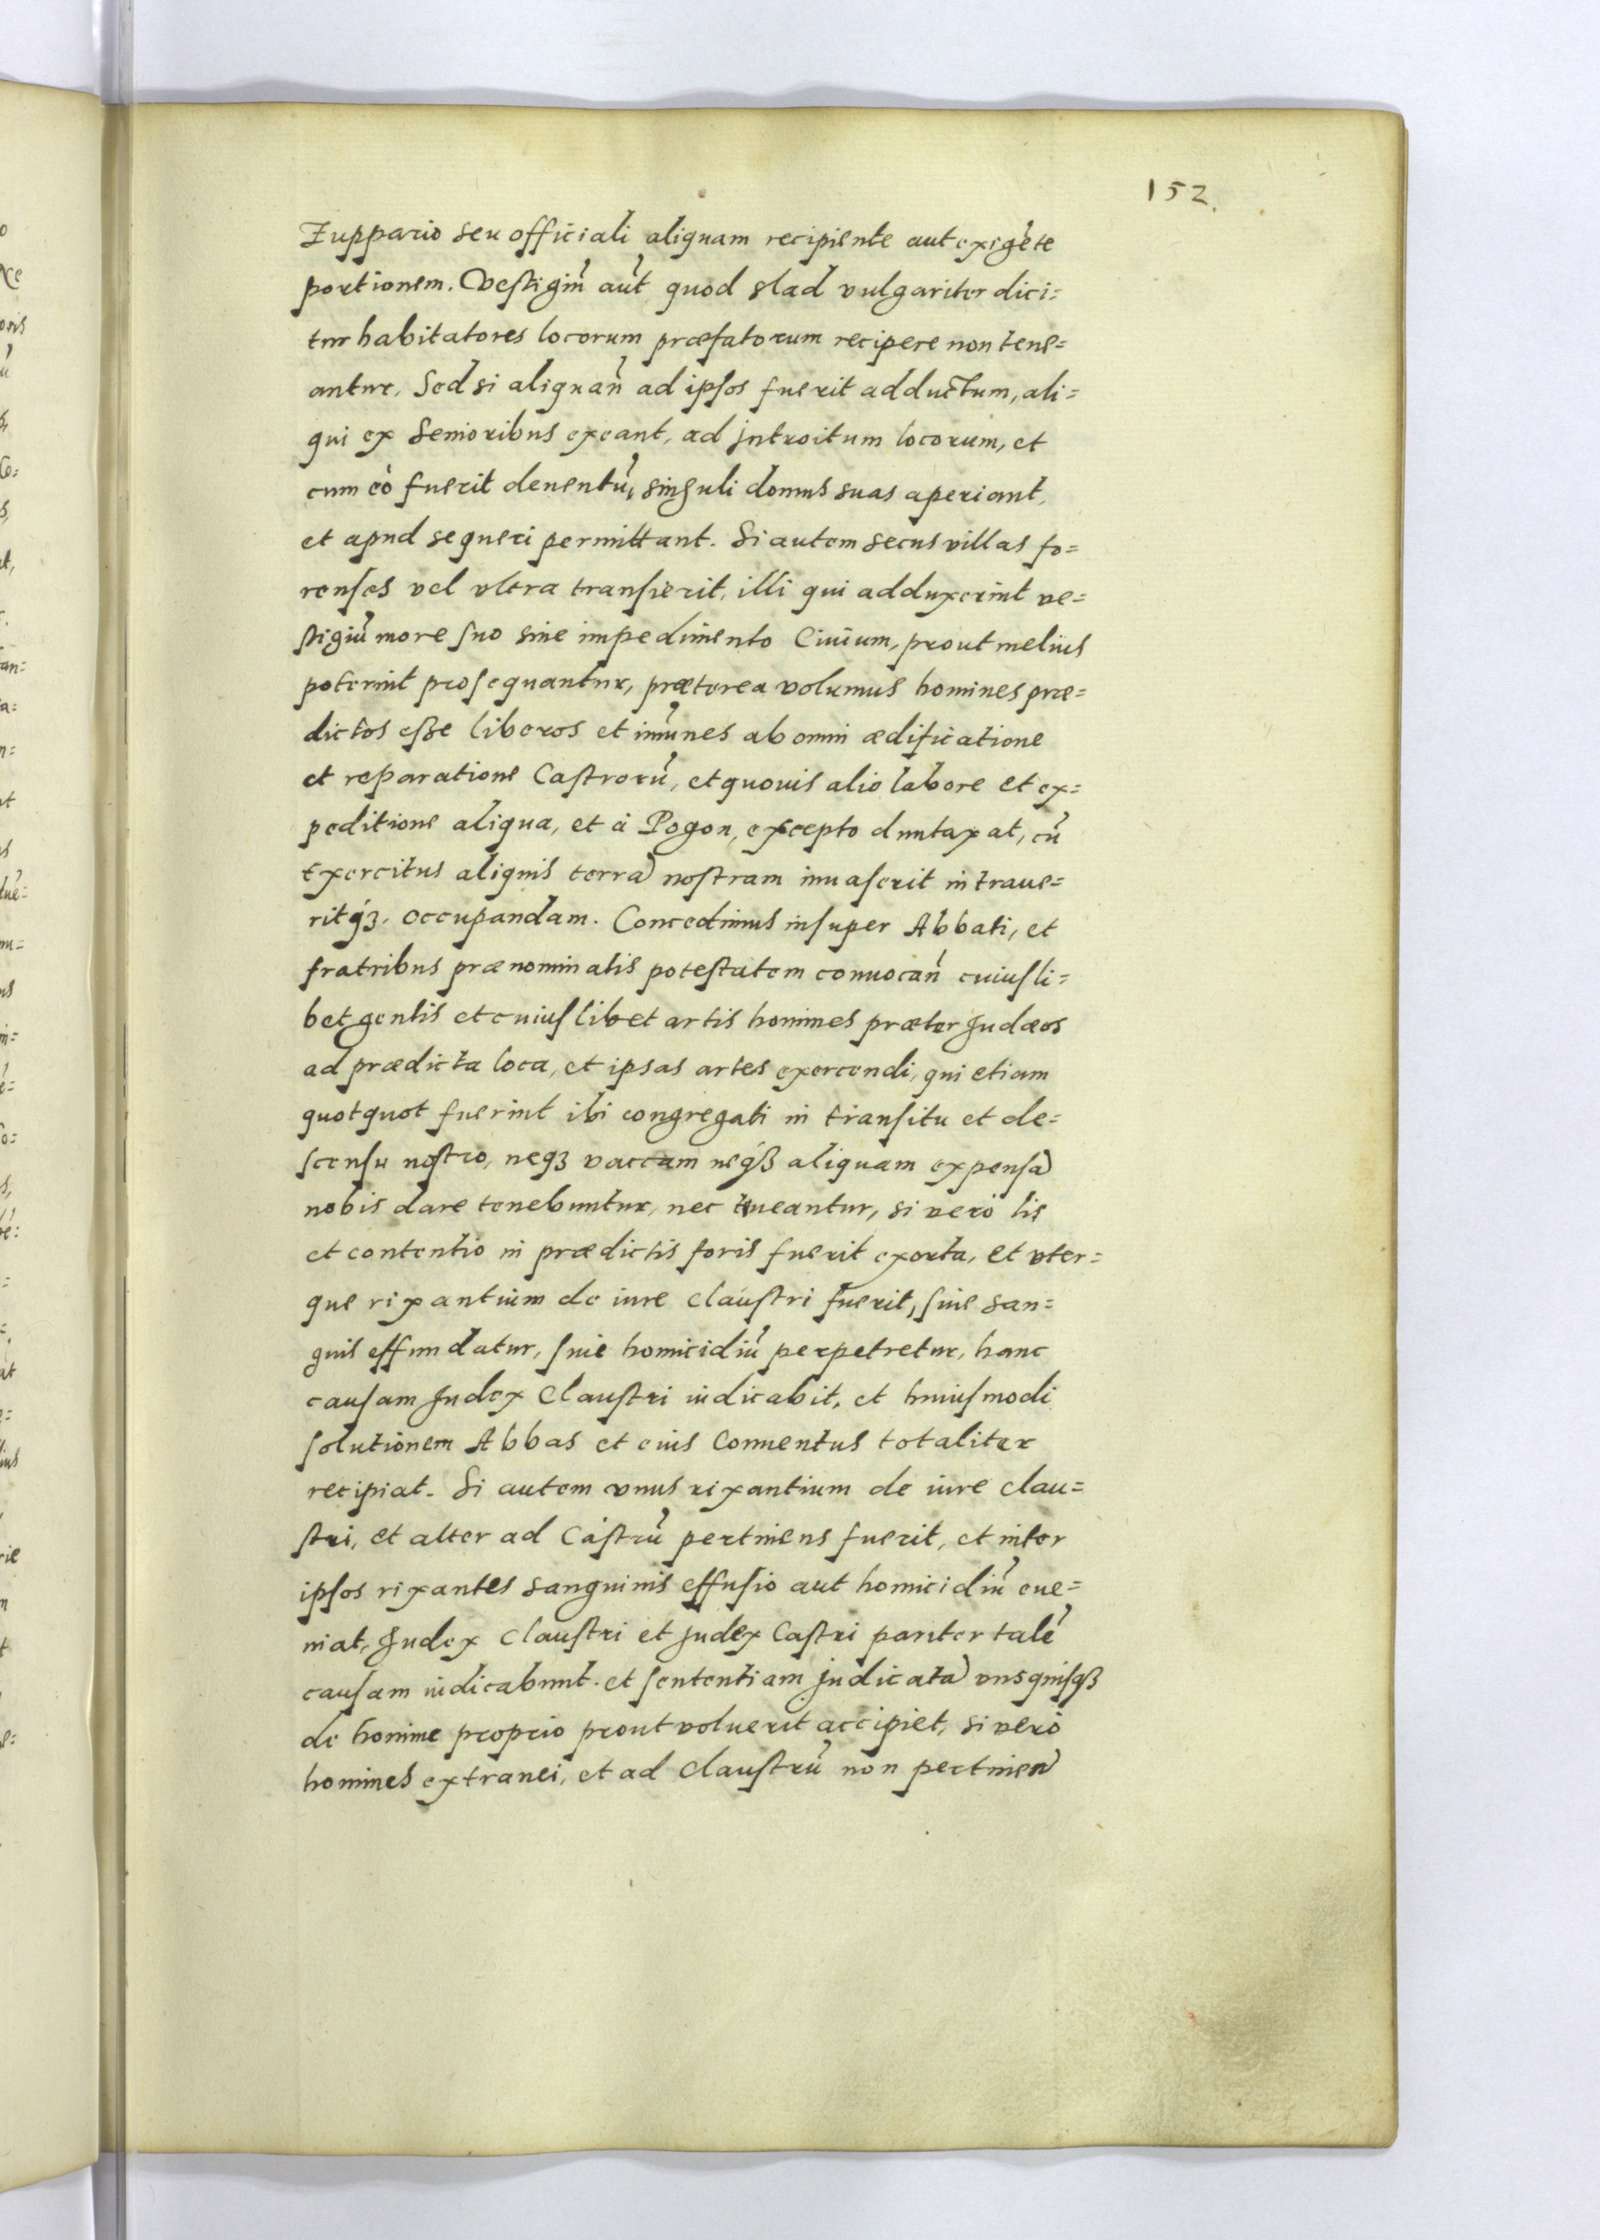 152.
Zuppario seu officiali aliquam recipiente aut exigẽte
portionem. Vestigiũ aũt quod slad vulgariter dici=
tur habitatores locorum præfatorum recipere non tene=
antur. Sed si aliquañ ad ipsos fuerit adductum, ali=
qui ex Senioribus exeant, ad introitum locorum, et
cum eò fuerit deuentũ, singuli domus suas aperiant,
et apud se queri permittant. Si autem secus villas fo=
renses vel vltra transierit, illi qui adduxerint ve=
stigiũ more suo sine impedimento Ciuium, prout melius
poterint prosequantur, præterea volumus homines præ=
dictos esse liberos et imũnes ab omni ædificatione
et reparatione Castrorũ, et quouis alio labore et ex=
peditione aliqua, et à Pogon, excepto duntaxat, cũ
Exercitus aliquis terrã nostram inuaserit intraue=
ritq́3. occupandam. Concedimus insuper Abbati, et
fratribus prænominatis potestatem conuocañ cuiusli=
bet gentis et cuiuslibet artis homines præter Judæos
ad prædicta loca, et ipsas artes exercendi, qui etiam
quotquot fuerint ibi congregati in transitu et de=
scensu nostro, neq3 vaccam neq́3 aliquam expensã
nobis dare tenebuntur, nec tueantur, si verò lis
et contentio in prædictis foris fuerit exorta, et vter=
que rixantium de iure claustri fuerit, siue san=
guis effundatur, siue homicidiũ perpetretur, hanc
causam Judex Claustri iudicabit, et huiusmodi
solutionem Abbas et eius Conuentus totaliter
recipiat. Si autem vnus rixantium de iure clau=
stri, et alter ad Castrũ pertinens fuerit, et inter
ipsos rixantes sanguinis effusio aut homicidiũ eue=
niat, Judex Claustri et Judex Castri pariter talẽ
causam iudicabunt. et sententiam judicatã vnsquisq3
de homine proprio prout voluerit accipiet, si verò
homines extranei, et ad Claustrũ non pertineñ